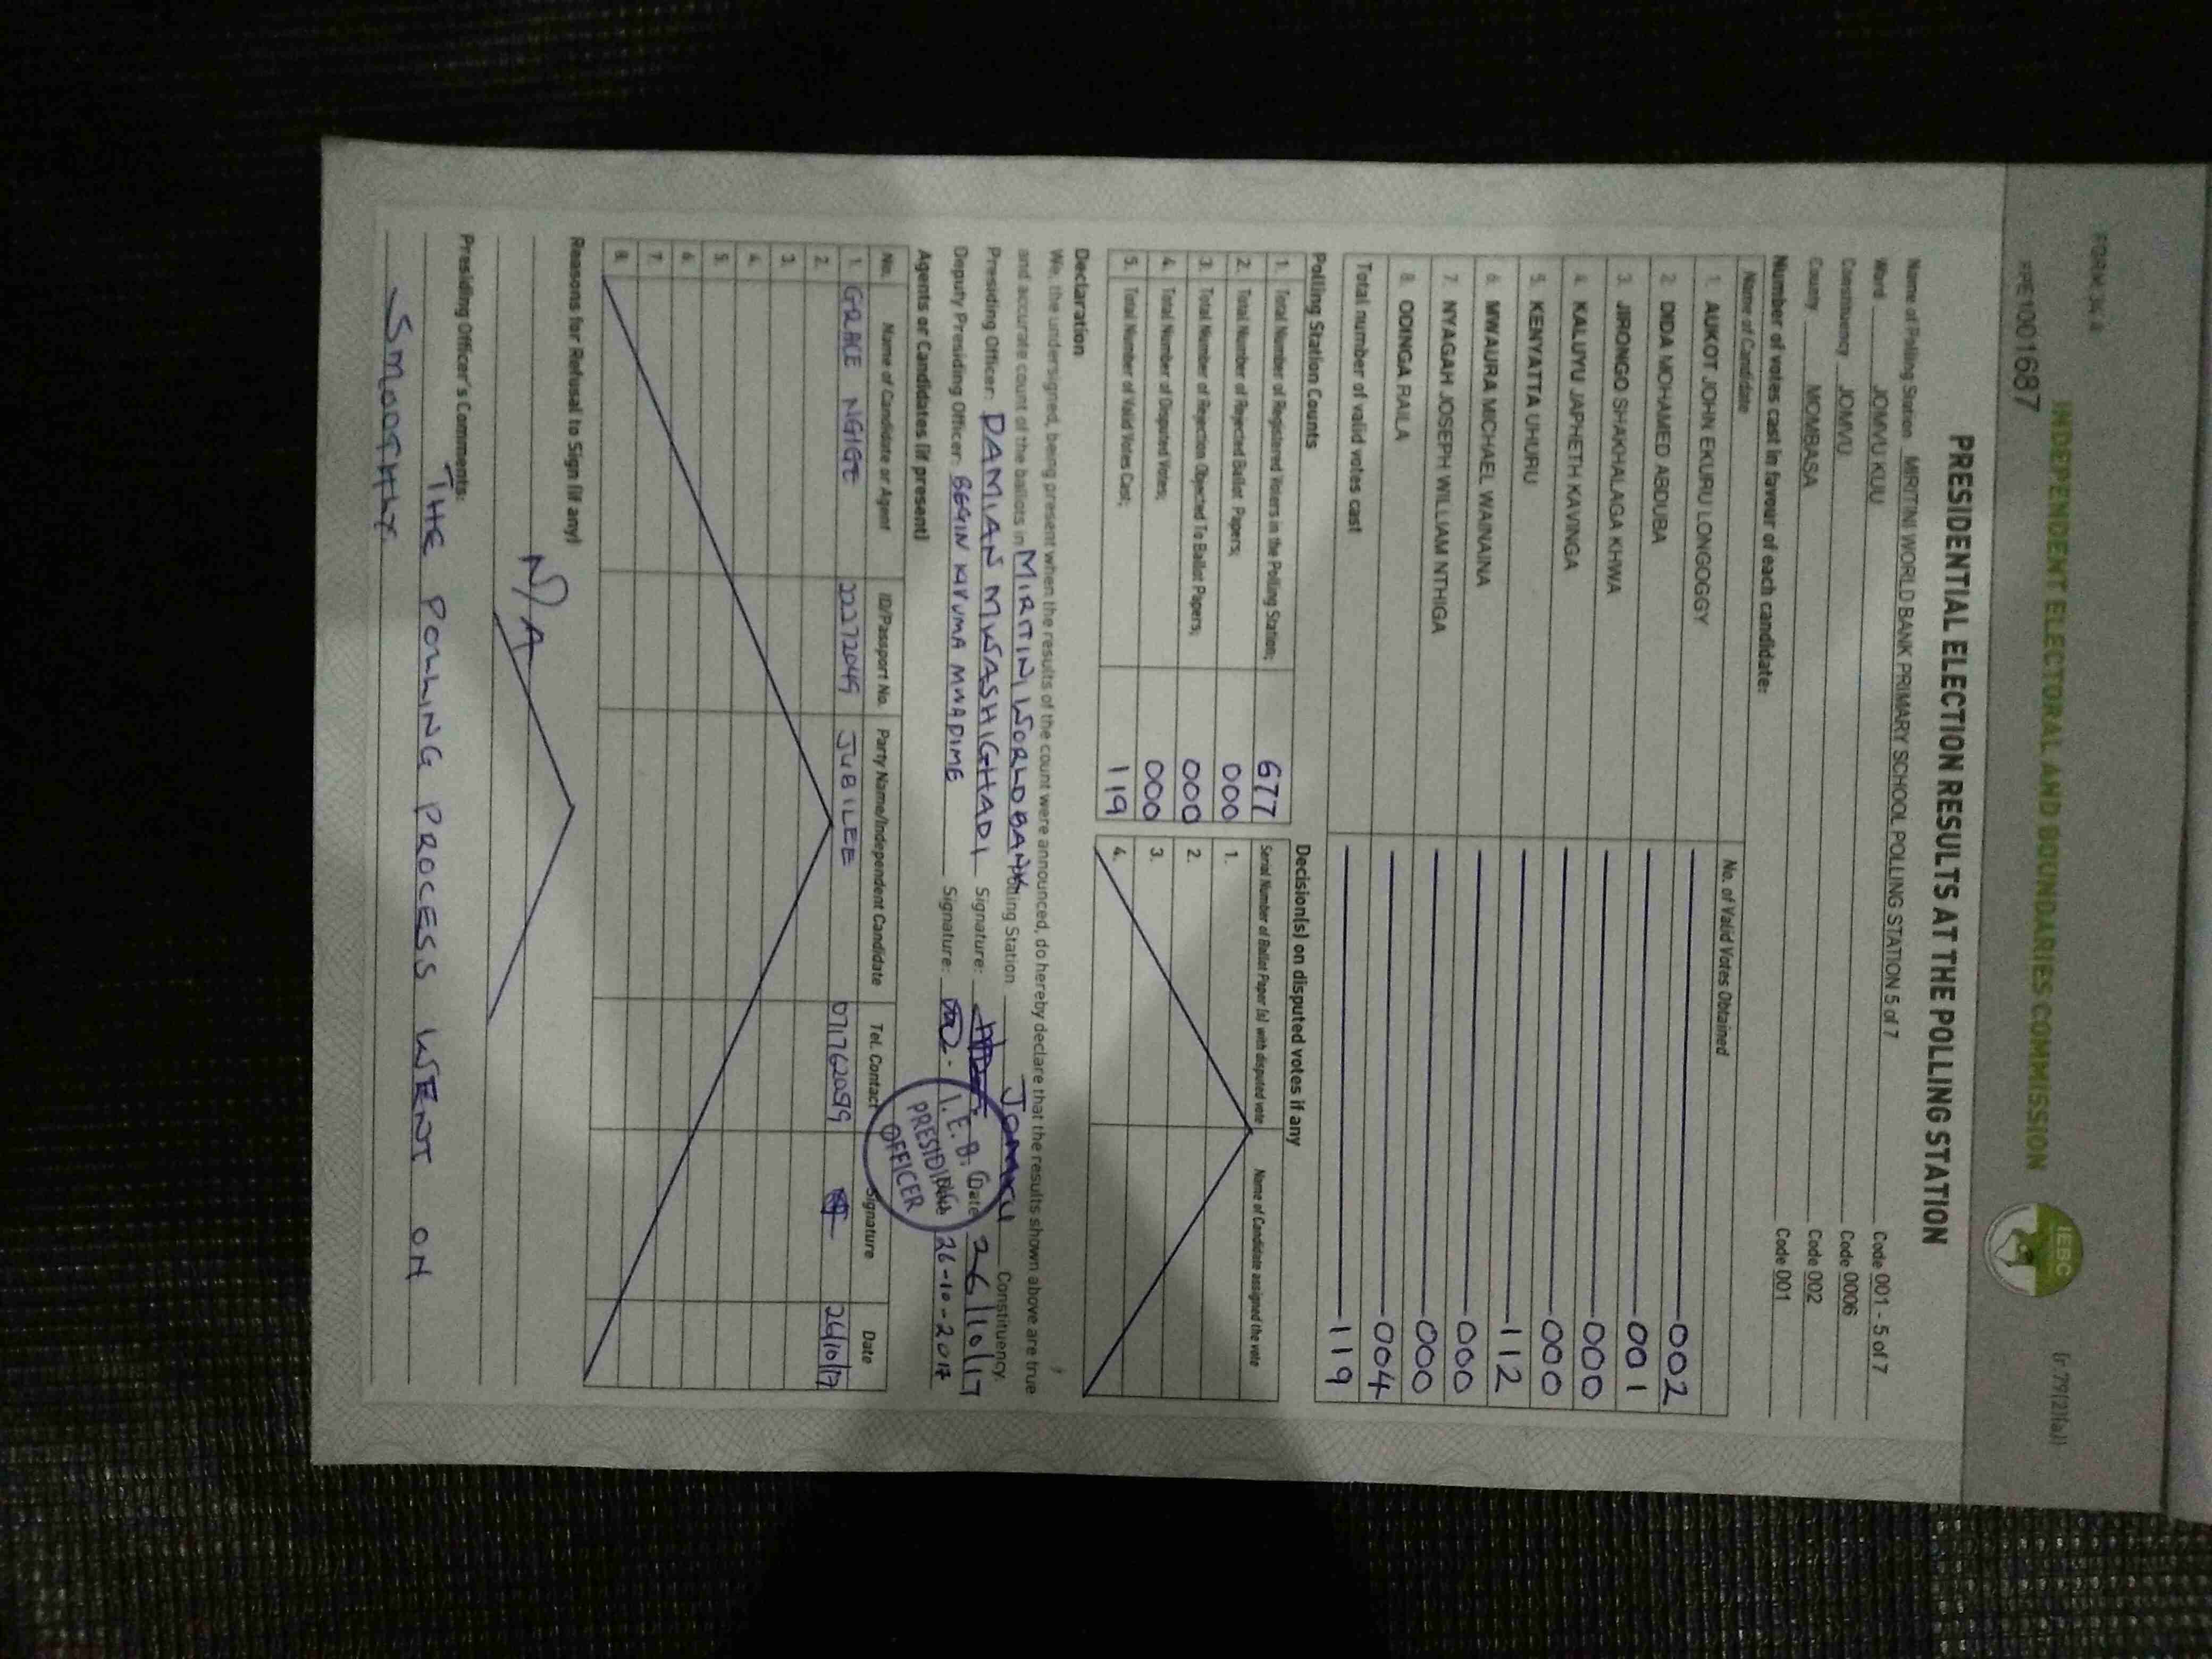 FORM 34 A
(r 79(2)(a))
INDEPENDENT ELECTORAL AND BOUNDARIES COMMISSION
IEBC
PE1001687
PRESIDENTIAL ELECTION RESULTS AT THE POLLING STATION
Name of Polling Station MIRITINI WORLD BANK PRIMARY SCHOOL POLLING STATION 5 of 7 Code 001 - 5 of 7
Ward JOMVU KUU Code 0006
Constituency JOMVU Code 002
County MOMBASA Code 001
Number of votes cast in favour of each candidate:
Name of Candidate No. of Valid Votes Obtained
1. AUKOT JOHN EKURU LONGOGGY 002
2. DIDA MOHAMED ABDUBA 001
3. JIRONGO SHAKHALAGA KHWA 000
4. KALUYU JAPHETH KAVINGA 000
5. KENYATTA UHURU 112
6. MWAURA MICHAEL WAINAINA 000
7. NYAGAH JOSEPH WILLIAM NTHIGA 000
8. ODINGA RAILA 004
Total number of valid votes cast 119
Polling Station Counts
1. Total Number of Registered Voters in the Polling Station; 677
2. Total Number of Rejected Ballot Papers; 000
3. Total Number of Rejection Objected To Ballot Papers; 000
4. Total Number of Disputed Votes; 000
5. Total Number of Valid Votes Cast; 119
Decision(s) on disputed votes if any
Serial Number of Ballot Paper (s) with disputed vote Name of Candidate assigned the vote
1.
2.
3.
4.
Declaration
We, the undersigned, being present when the results of the count were announced, do hereby declare that the results shown above are true
and accurate count of the ballots in MIRITINI WORLD BANK Polling Station JOMVU Constituency.
Presiding Officer: DAMIAN MWASHIGHADI Signature: Date 26/10/17
Deputy Presiding Officer: BEGIN KIVUMA MWADIME Signature: 26-10-2017
I.E.B.C
PRESIDING
OFFICER
Agents or Candidates (if present)
No. Name of Candidate or Agent ID/Passport No. Party Name/Independent Candidate Tel. Contact Signature Date
1. GRACE NGIGE 22272049 JUBILEE 0717620099 26/10/17
2.
3.
4.
5.
6.
7.
8.
Reasons for Refusal to Sign (if any)
N/A
Presiding Officer's Comments:
THE POLLING PROCESS WENT ON
SMOOTHLY